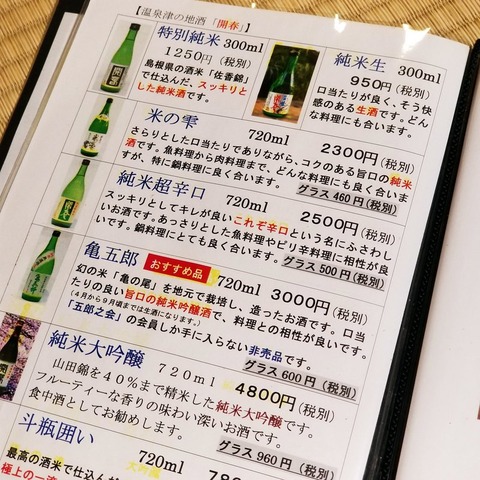 【温泉津の地酒「開春」】
特別純米 300ml
1250円（税別）
島根県の酒米「佐香錦」
で仕込んだ、スッキリと
した純米酒です。
純米生 300ml
950円（税別）
口当たりが良く、そう快
感のある生酒です。どん
な料理にも合います。
米の雫 720ml 2300円（税別）
さらりとした口当たりでありながら、コクのある旨口の純米
酒です。魚料理から肉料理まで、どんな料理にも良く合いま
すが、特に鍋料理に良く合います。
グラス 460円（税別）
純米超辛口 720ml 2500円（税別）
スッキリとしてキレが良いこれぞ辛口という名にふさわし
いお酒です。あっさりとした魚料理やピリ辛料理に相性が良
いです。鍋料理にとても良く合います。
グラス 500円（税別）
亀五郎 おすすめ品 720ml 3000円（税別）
幻の米「亀の尾」を地元で栽培し、造ったお酒です。口当
たりの良い旨口の純米吟醸酒で、料理との相性が良いです。
（４月から９月頃までは生酒になります。）
「五郎之会」の会員しか手に入らない非売品です。
グラス 600円（税別）
純米大吟醸 720ml 4800円（税別）
山田錦を４０％まで精米した純米大吟醸です。
フルーティーな香りの味わい深いお酒です。
食中酒としてお勧めします。
グラス 960円（税別）
斗瓶囲い 720ml
最高の酒米で仕込んだ
大吟醸